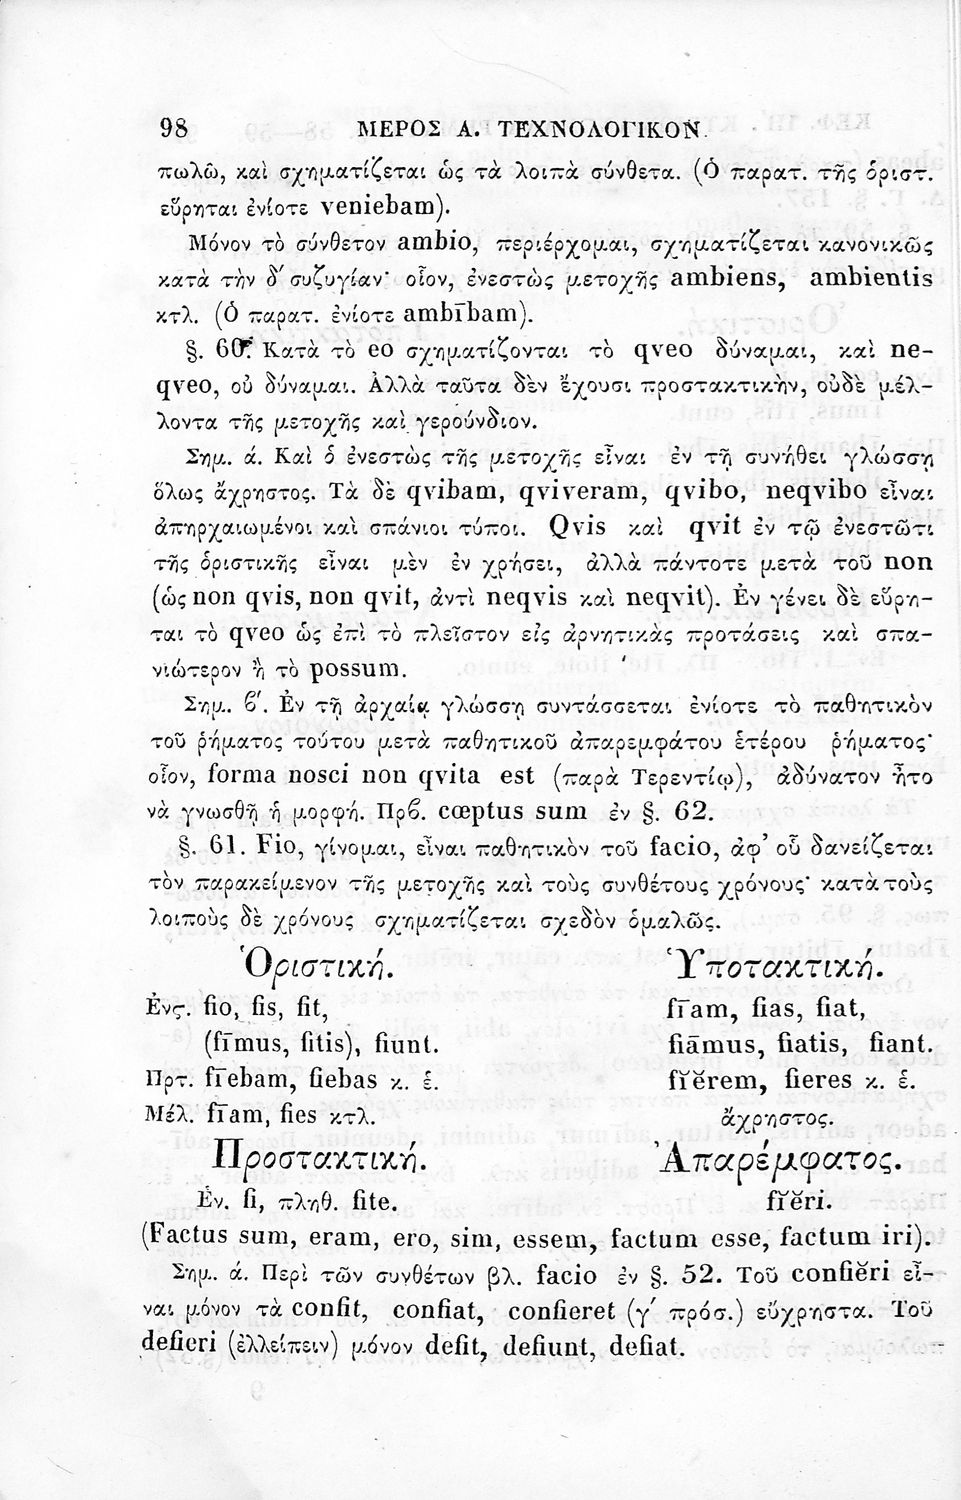 98 ΜΕΡΟΣ Α. ΤΕΧΝΟΛΟΓΙΚΟΝ.
πωλῶ, καὶ σχηματίζεται ὡς τὰ λοιπὰ σύνθετα. (Ὁ παρατ. τῆς ὁριστ.
εὕρηται ἐνίοτε veniebam).
Μόνον τὸ σύνθετον ambio, περιέρχομαι, σχηματίζεται κανονικῶς
κατὰ τὴν δ′ συζυγίαν· οἷον, ἐνεστὼς μετοχῆς ambiens, ambientis
κτλ. (Ὁ παρατ. ἐνίοτε ambībam).
§. 60. Κατὰ τὸ eo σχηματίζονται τὸ qveo δύναμαι, καὶ ne-
qveo, οὐ δύναμαι. Ἀλλὰ ταῦτα δὲν ἔχουσι προστακτικὴν, οὐδὲ μέλ-
λοντα τῆς μετοχῆς καὶ γερούνδιον.
Σημ. ά. Καὶ ὁ ἐνεστὼς τῆς μετοχῆς εἶναι ἐν τῇ συνήθει γλώσσῃ
ὅλως ἄχρηστος. Τὰ δὲ qvibam, qviveram, qvibo, neqvibo εἶναι
ἀπηρχαιωμένοι καὶ σπάνιοι τύποι. Qvis καὶ qvit ἐν τῷ ἐνεστῶτι
τῆς ὁριστικῆς εἶναι μὲν ἐν χρήσει, ἀλλὰ πάντοτε μετὰ τοῦ non
(ὡς non qvis, non qvit, ἀντὶ neqvis καὶ neqvit). Ἐν γένει δὲ εὕρη-
ται τὸ qveo ὡς ἐπὶ τὸ πλεῖστον εἰς ἀρνητικὰς προτάσεις καὶ σπα-
νιώτερον ἢ τὸ possum.
Σημ. ϐ′. Ἐν τῇ ἀρχαίᾳ γλώσσῃ συντάσσεται ἐνίοτε τὸ παθητικὸν
τοῦ ῥήματος τούτου μετὰ παθητικοῦ ἀπαρεμφάτου ἑτέρου ῥήματος·
οἷον, forma nosci non qvita est (παρὰ Τερεντίῳ), ἀδύνατον ἦτο
νὰ γνωσθῇ ἡ μορφή. Πρϐ. cœptus sum ἐν §. 62.
§. 61. Fio, γίνομαι, εἶναι παθητικὸν τοῦ facio, ἀφ’ οὗ δανείζεται
τὸν παρακείμενον τῆς μετοχῆς καὶ τοὺς συνθέτους χρόνους· κατὰ τοὺς
λοιποὺς δὲ χρόνους σχηματίζεται σχεδὸν ὁμαλῶς.
Ὁριστική. Ὑποτακτική.
Ἐνς. fio, fis, fit, fīam, fias, fiat,
(fīmus, fitis), fiunt. fiāmus, fiatis, fiant.
Πρτ. fīebam, fiebas κ. ἑ. fĭĕrem, fieres κ. ἑ.
Μέλ. fīam, fies κτλ. ἄχρηστος.
Προστακτική. Ἀπαρέμφατος.
Ἑν. fi, πληθ. fite. fĭĕri.
(Factus sum, eram, ero, sim, essem, factum esse, factum iri).
Σημ. ά. Περὶ τῶν συνθέτων βλ. facio ἐν §. 52. Τοῦ confiĕri εἶ-
ναι μόνον τὰ confit, confiat, confieret (γ′ πρόσ.) εὔχρηστα. Τοῦ
defieri (ἐλλείπειν) μόνον defit, defiunt, defiat.